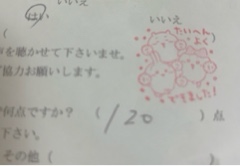 いいえ
はい いいえ
(
を聴かせて下さいませ。
協力お願いします。
たいへん
よく
できました!
何点ですか? ( 120 ) 点
下さい。
その他 ( )